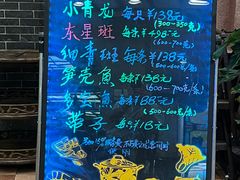 小青龙 每只￥138元
(300-350克)
东星斑 每条￥498元
(600-700克)
细青斑 每条￥138元
(500-600克)
笋壳鱼 每条￥138元
(600-700克)
多宝鱼 每条￥88元
(500-600克)
带子 每只￥18元